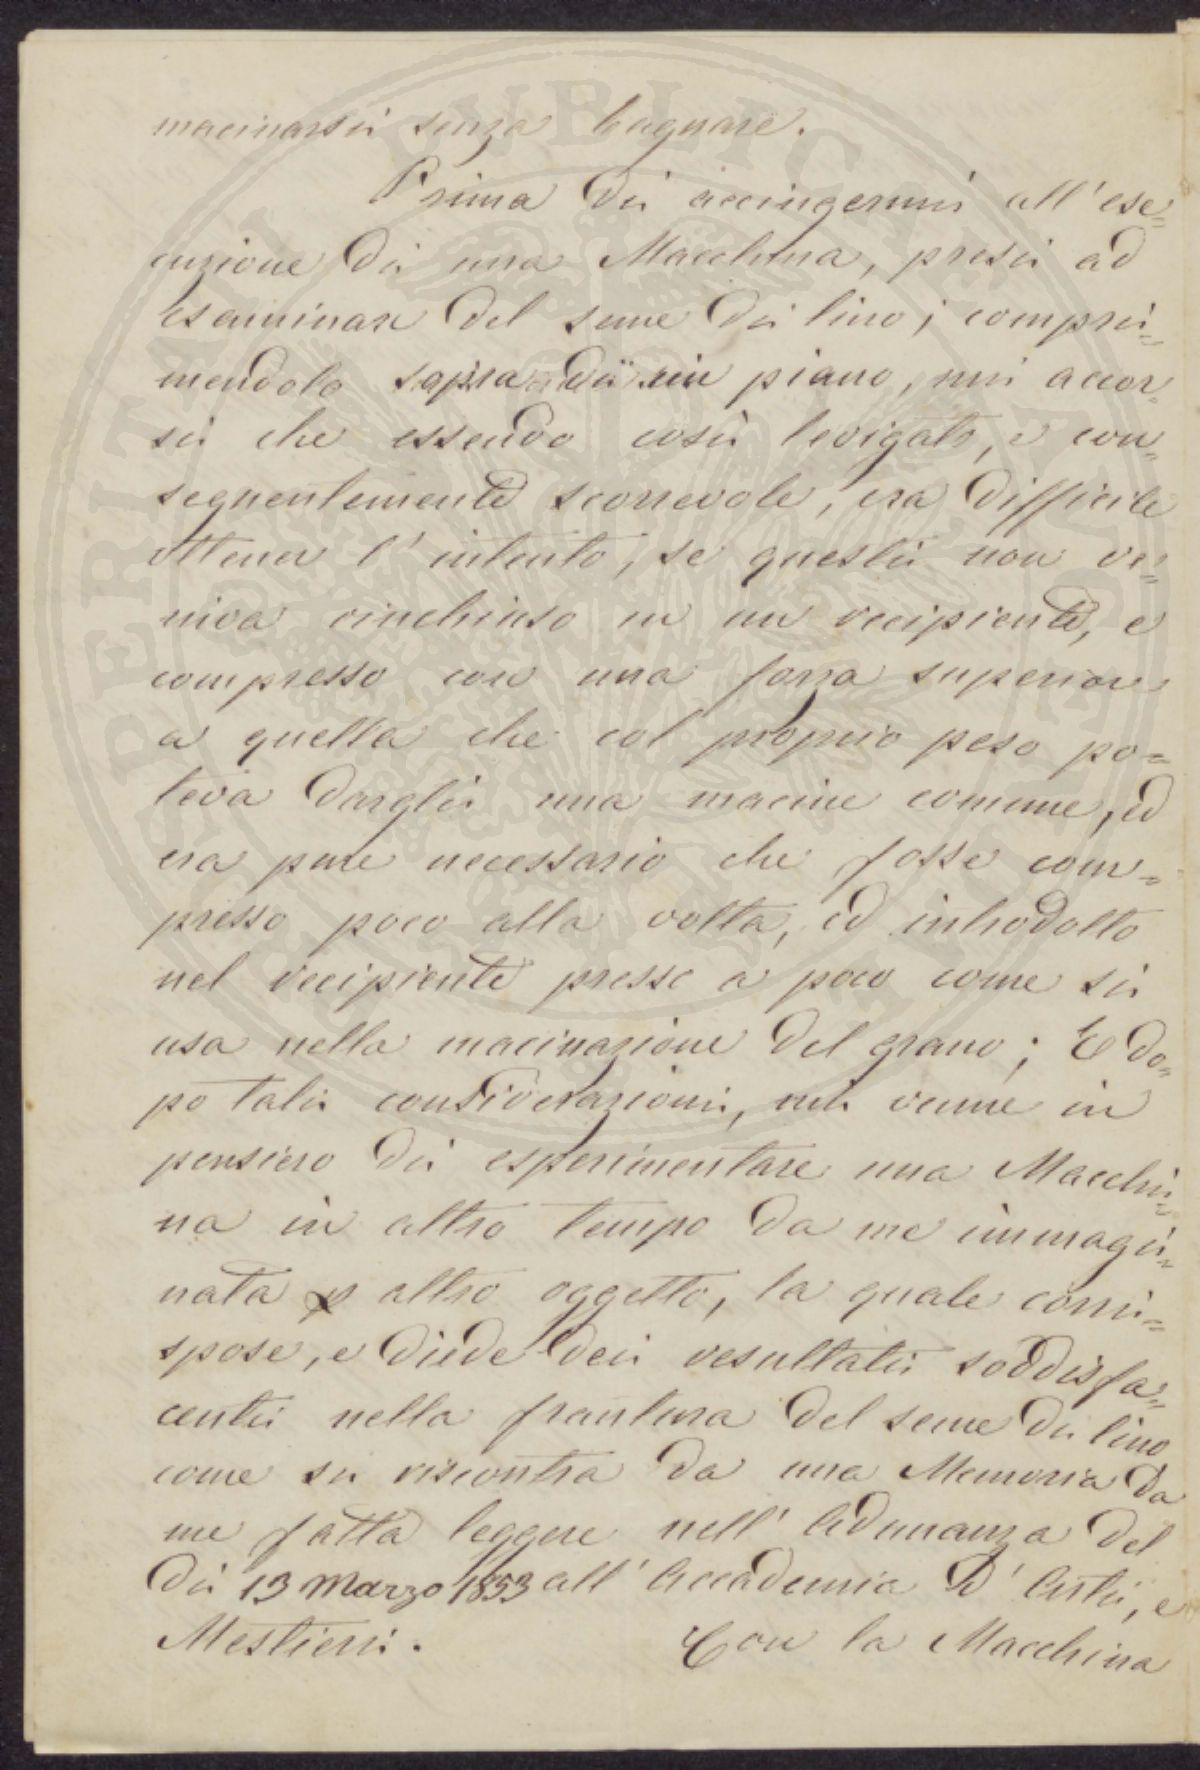 macinarsi senza bagnare.
Prima di accingermi all'ese=
cuzione di una Macchina, presi ad
esaminare del seme di lino; compri=
mendolo sopra di un piano, mi accor=
si che essendo così levigato, e con=
seguentemente scorrevole, era difficile
ottener l'intento, se questi non ve=
niva rinchiuso in un recipiente, e
compresso con una forza superiore
a quella che col proprio peso po=
teva dargli una macine comune, ed
era pure necessario che fosse com=
presso poco alla volta, ed introdotto
nel recipiente presso a poco come si
usa nella macinazione del grano; E do=
po tali considerazioni, mi venne in
pensiero di esperimentare una Macchi=
na in altro tempo da me immagi=
nata p altro oggetto, la quale corri=
spose, e diede dei resultati soddisfa=
centi nella frantura del seme di lino
come si riscontra da una Memoria da
me fatta leggere nell'Adunanza del
dì 13 Marzo 1853 all'Accademia d'Arti, e
Mestieri. Con la Macchina
PERITAT PVBLICAE